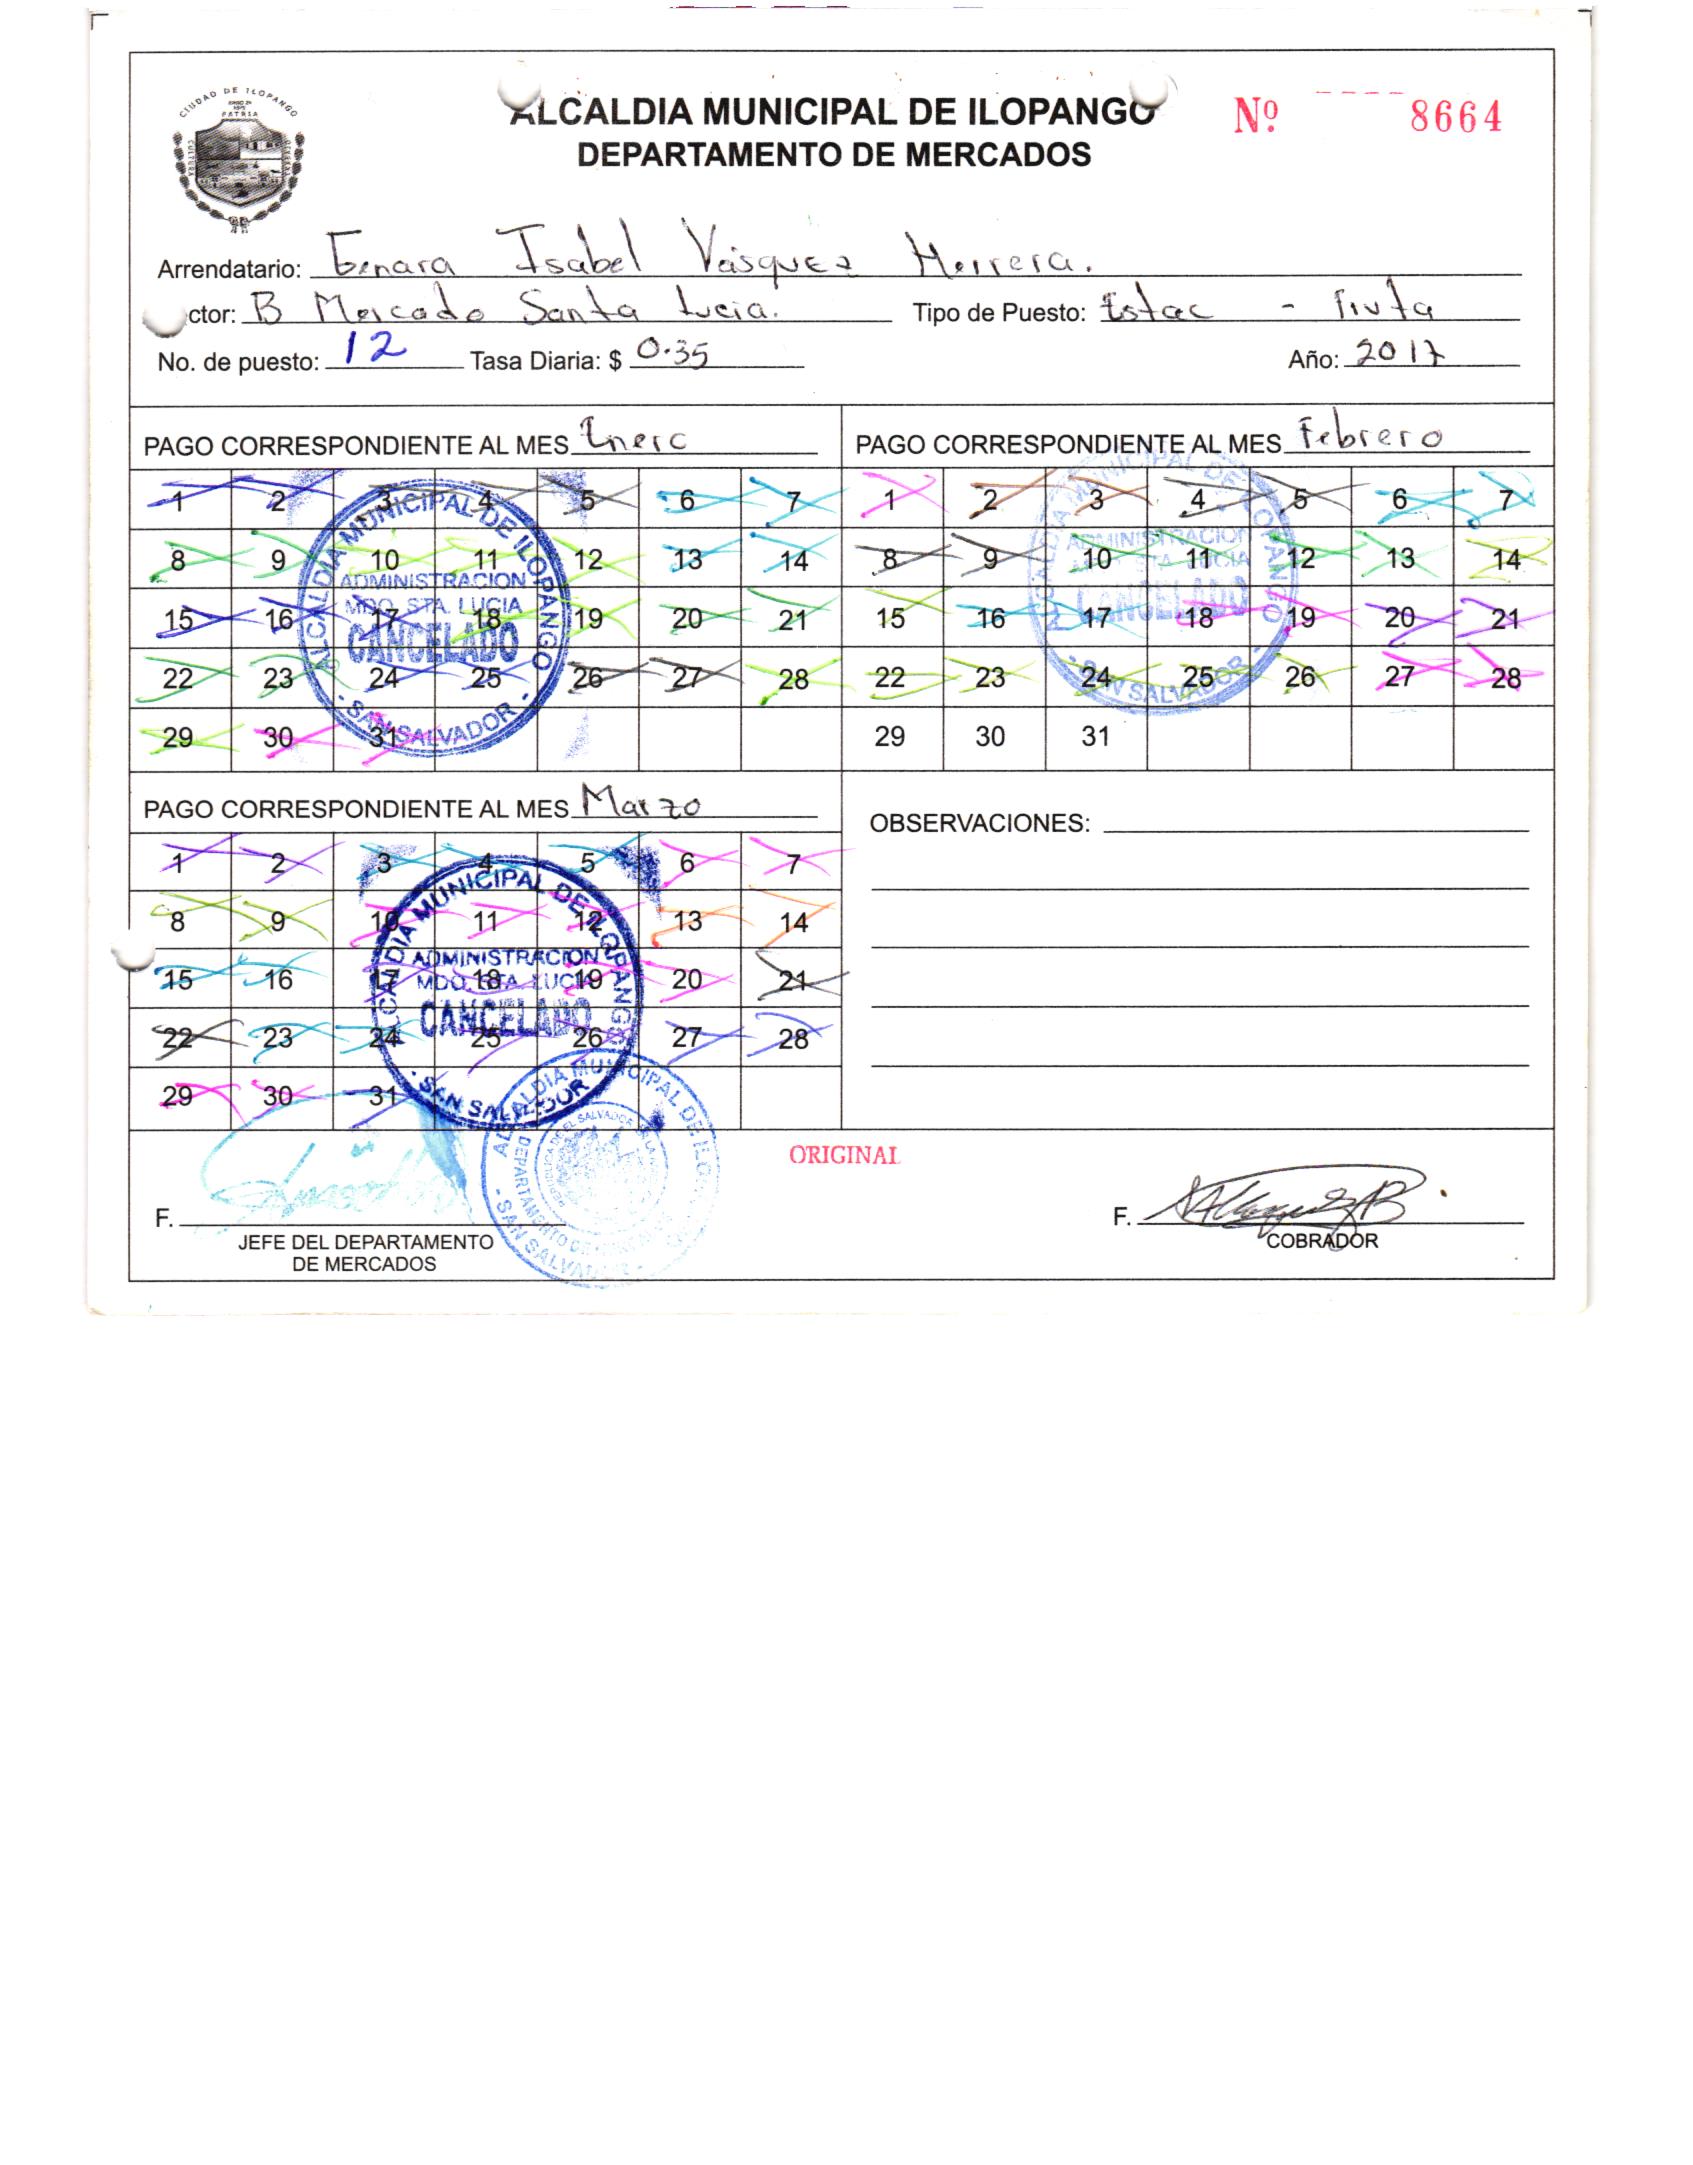 CIUDAD DE ILOPANGO
PATRIA
CULTURA
ALCALDIA MUNICIPAL DE ILOPANGO
DEPARTAMENTO DE MERCADOS
Nº 8664
Arrendatario: Genara Isabel Vásquez Herrera.
ctor: B Mercado Santa Lucia. Tipo de Puesto: Estac -
No. de puesto: 12 Tasa Diaria: $ 0.35 Año: 2017
PAGO CORRESPONDIENTE AL MES Enero
1 2 3 4 5 6 7
8 9 10 11 12 13 14
15 16 17 18 19 20 21
22 23 24 25 26 27 28
29 30 31
ALCALDIA MUNICIPAL DE ILOPANGO
ADMINISTRACION
MDO. STA. LUCIA
CANCELADO
· SAN SALVADOR ·
PAGO CORRESPONDIENTE AL MES Febrero
1 2 3 4 5 6 7
8 9 10 11 12 13 14
15 16 17 18 19 20 21
22 23 24 25 26 27 28
29 30 31
ALCALDIA MUNICIPAL DE ILOPANGO
ADMINISTRACION
MDO. STA. LUCIA
CANCELADO
· SAN SALVADOR ·
PAGO CORRESPONDIENTE AL MES Marzo
1 2 3 4 5 6 7
8 9 10 11 12 13 14
15 16 17 18 19 20 21
22 23 24 25 26 27 28
29 30 31
ALCALDIA MUNICIPAL DE ILOPANGO
ADMINISTRACION
MDO. STA. LUCIA
CANCELADO
· SAN SALVADOR ·
OBSERVACIONES:
ALCALDIA MUNICIPAL DE ILO
DEPARTAMENTO DE
SAN SALVADOR
ORIGINAL
F.
JEFE DEL DEPARTAMENTO
DE MERCADOS
F.
COBRADOR